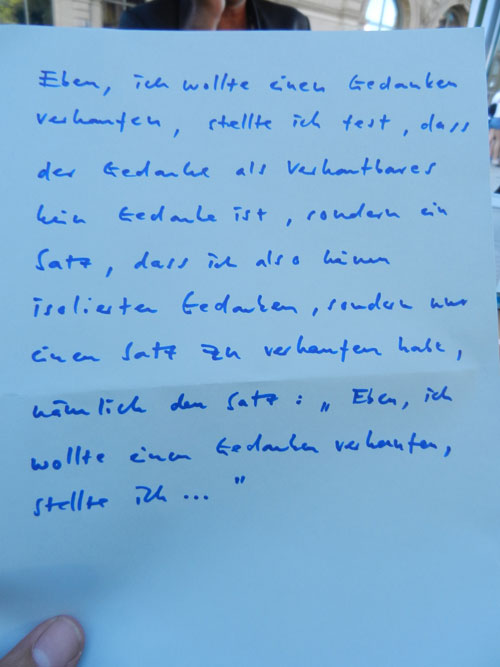 Eben, ich wollte einen Gedanken
verkaufen, stellte ich fest, dass
der Gedanke als Verkaufbares
kein Gedanke ist, sondern ein
Satz, dass ich also keinen
isolierten Gedanken, sondern nur
einen Satz zu verkaufen habe,
nämlich den Satz: „Eben, ich
wollte einen Gedanken verkaufen,
stellte ich ..."